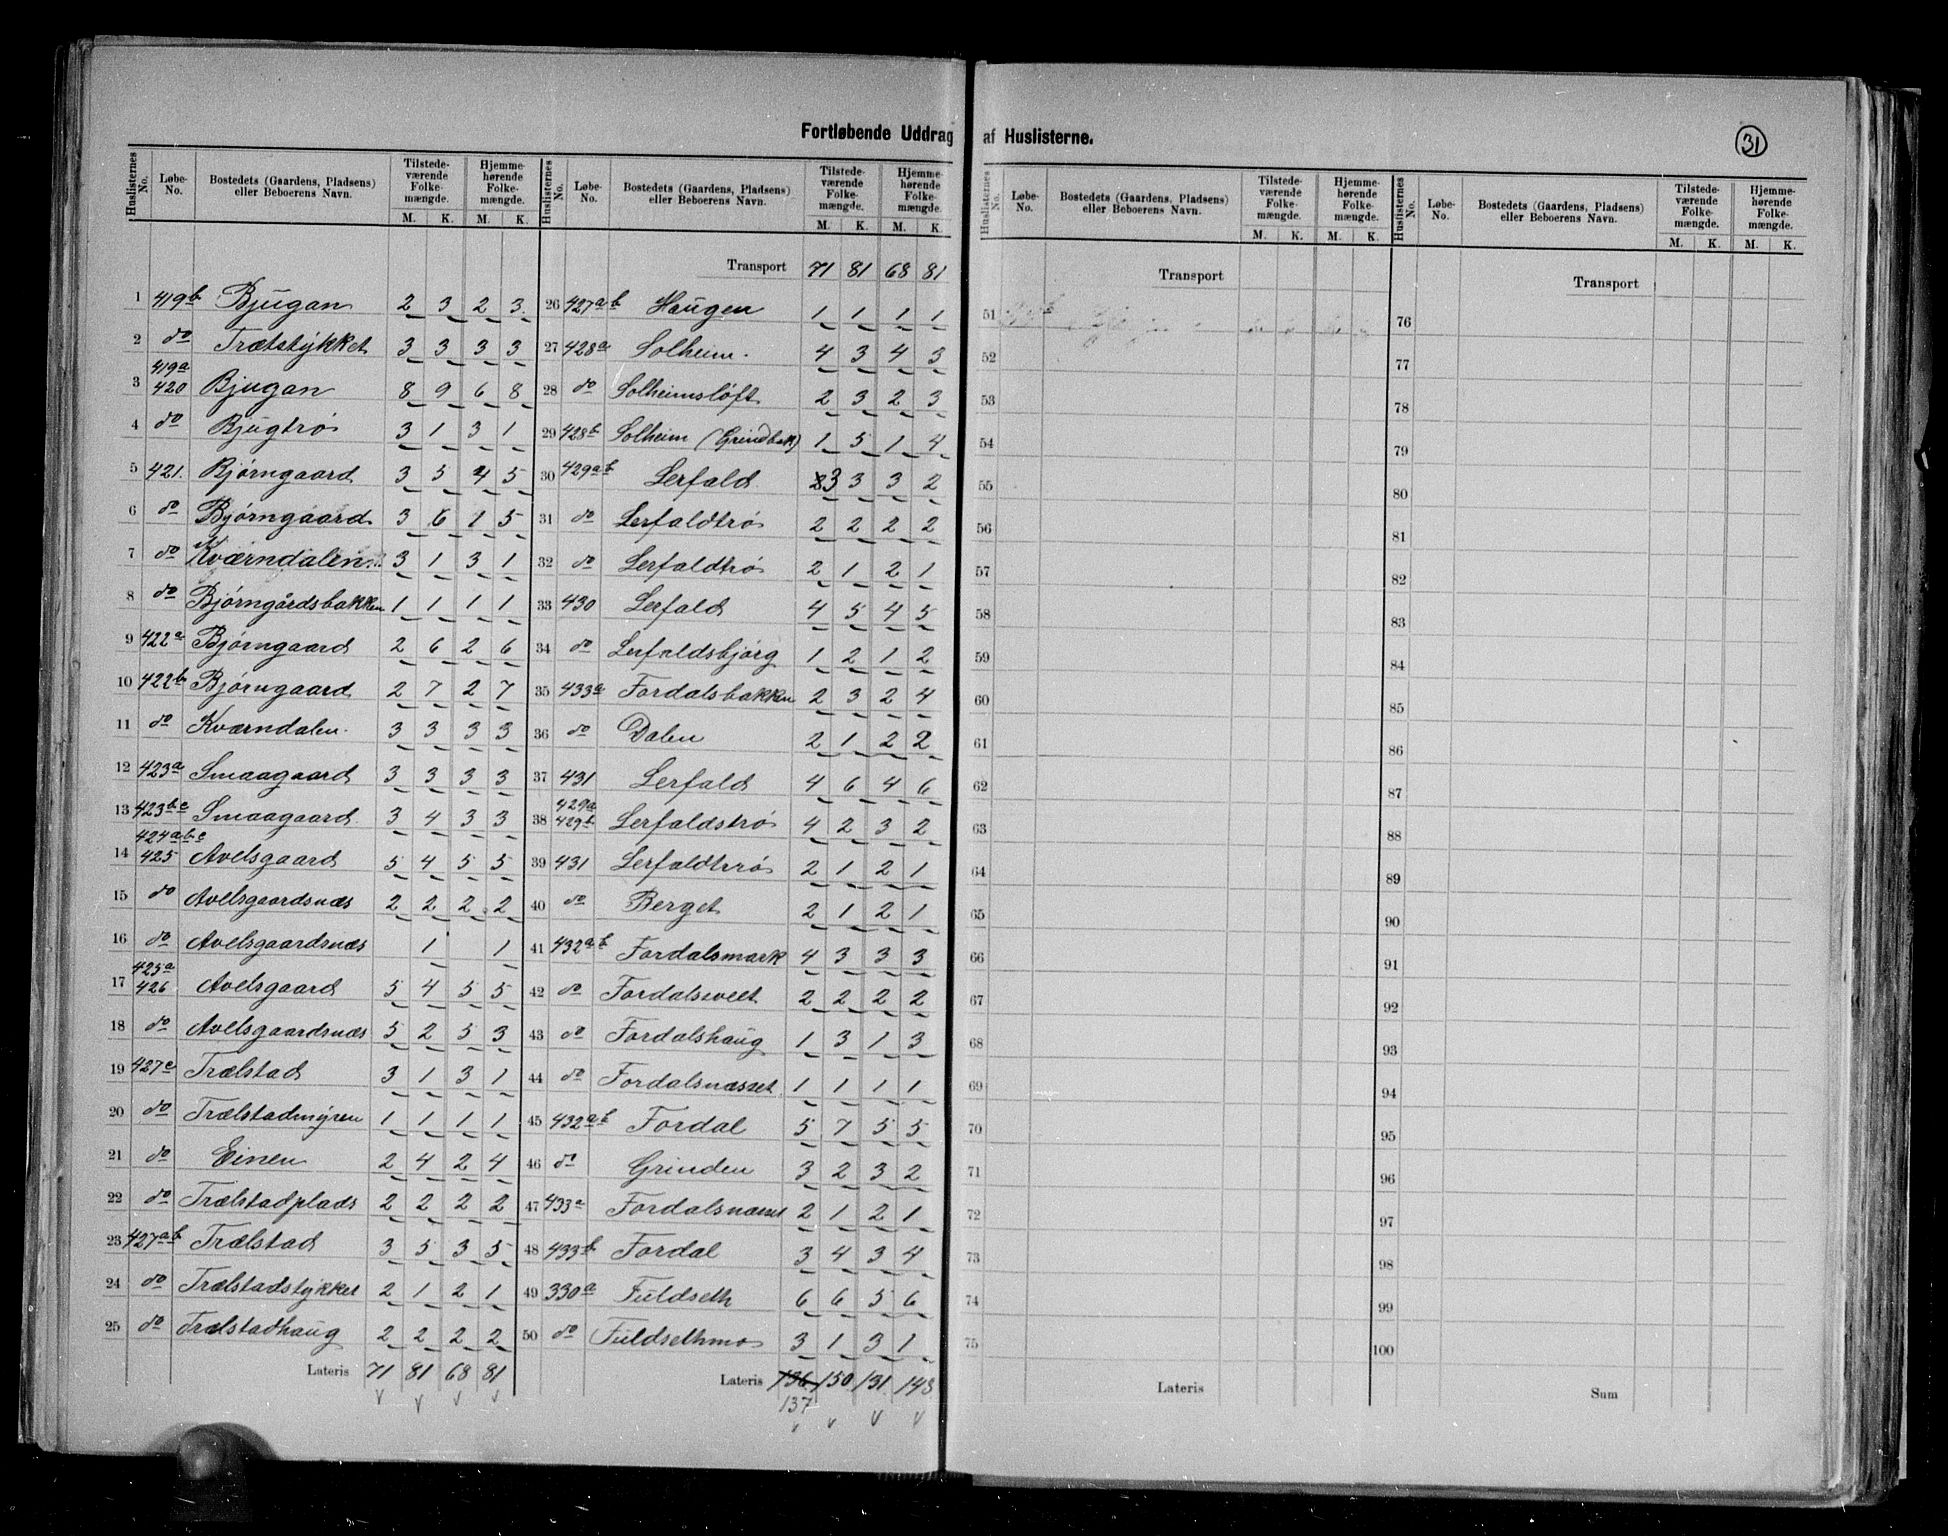 Fortløbende Uddrag af Huslisterne.
31
Huslisternes No. Løbe-No. Bostedets (Gaardens, Pladsen) eller Beboerens Navn. Tilstede-værende Folke-mængde. Hjemme-hørende Folke-mængde.
M. K. M. K.
1 419b Bjugan 2 3 2 3
2 do Trætstykket 3 3 3 3
3 419a 420 Bjugan 8 9 6 8
4 do Bjugtrø 3 1 3 1
5 421. Bjørngaard 3 5 4 5
6 do Bjørngaard 3 6 1 5
7 do Kværndalen 3 1 3 1
8 do Bjørngårdsbakken 1 1 1 1
9 422a Bjørngaard 2 6 2 6
10 422b Bjørngaard 2 7 2 7
11 do Kværndalen. 3 3 3 3
12 423a Smaagaard 3 3 3 3
13 423bc Smaagaard 3 4 3 3
14 424abc 425 Avelsgaard 5 4 5 5
15 do Avelsgaardsnæs 2 2 2 2
16 do Avelsgaardsnæs 1 1
17 425a 426 Avelsgaard 5 4 5 5
18 do Avelsgaardsnæs 5 2 5 3
19 427c Trælstad 3 1 3 1
20 do Trælstadmyren 1 1 1 1
21 do Einen 2 4 2 4
22 do Trælstadplads 2 2 2 2
23 427ab Trælstad 3 5 3 5
24 do Trælstadstykket 2 1 2 1
25 do Trælstadhaug 2 2 2 2
Lateris 71 81 68 81
Huslisternes No. Løbe-No. Bostedets (Gaardens, Pladsen) eller Beboerens Navn. Tilstede-værende Folke-mængde. Hjemme-hørende Folke-mængde.
M. K. M. K.
Transport 71 81 68 81
26 427ab Haugen 1 1 1 1
27 428a Solheim. 4 3 4 3
28 do Solheimsløft 2 3 2 3
29 428b Solheim (Grindbak) 1 5 1 4
30 429ab Lerfald 3 3 3 2
31 do Lerfaldtrø 2 2 2 2
32 do Lerfaldtrø 2 1 2 1
33 430 Lerfald 4 5 4 5
34 do Lerfaldsbjørg 1 2 1 2
35 433a Fordalsbakken 2 3 2 4
36 do Dalen 2 1 2 2
37 431 Lerfald 4 6 4 6
38 429a 429b Lerfaldstrø 4 2 3 2
39 431 Lerfaldtrø 2 1 2 1
40 do Berget 2 1 2 1
41 432ab Fordalsmark 4 3 3 3
42 do Fordalsveet 2 2 2 2
43 do Fordalshaug 1 3 1 3
44 do Fordalsnæsset 1 1 1 1
45 432ab Fordal 5 7 5 5
46 do Grinden 3 2 3 2
47 433a Fordalsnæsset 2 1 2 1
48 433b Fordal 3 4 3 4
49 330a Fuldseth 6 6 5 6
50 do Fuldsethmo 3 1 3 1
Lateris 136 150 131 148
137
Huslisternes No. Løbe-No. Bostedets (Gaardens, Pladsen) eller Beboerens Navn. Tilstede-værende Folke-mængde. Hjemme-hørende Folke-mængde.
M. K. M. K.
Transport
51
52
53
54
55
56
57
58
59
60
61
62
63
64
65
66
67
68
69
70
71
72
73
74
75
Lateris
Huslisternes No. Løbe-No. Bostedets (Gaardens, Pladsen) eller Beboerens Navn. Tilstede-værende Folke-mængde. Hjemme-hørende Folke-mængde.
M. K. M. K.
Transport
76
77
78
79
80
81
82
83
84
85
86
87
88
89
90
91
92
93
94
95
96
97
98
99
100
Sum